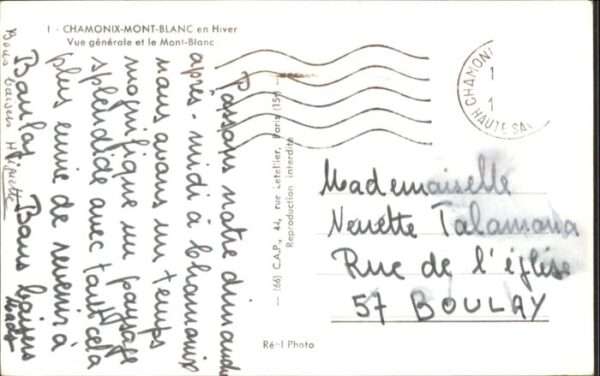 1 - CHAMONIX-MONT-BLANC en Hiver
Vue générale et le Mont-Blanc
Passons notre dimanche
après-midi à Chamonix
nous avons un temps
magnifique un paysage
splendide avec tout cela
plus envie de revenir à
Boulay Bons baisers
Bons baisers Huguette
(66) C.A.P., 44, rue Letellier, Paris (15e)
Reproduction interdite
Réel Photo
CHAMONI
1
1
HAUTE SA
Mademoiselle
Talamona
Rue de l'église
57 BOULAY